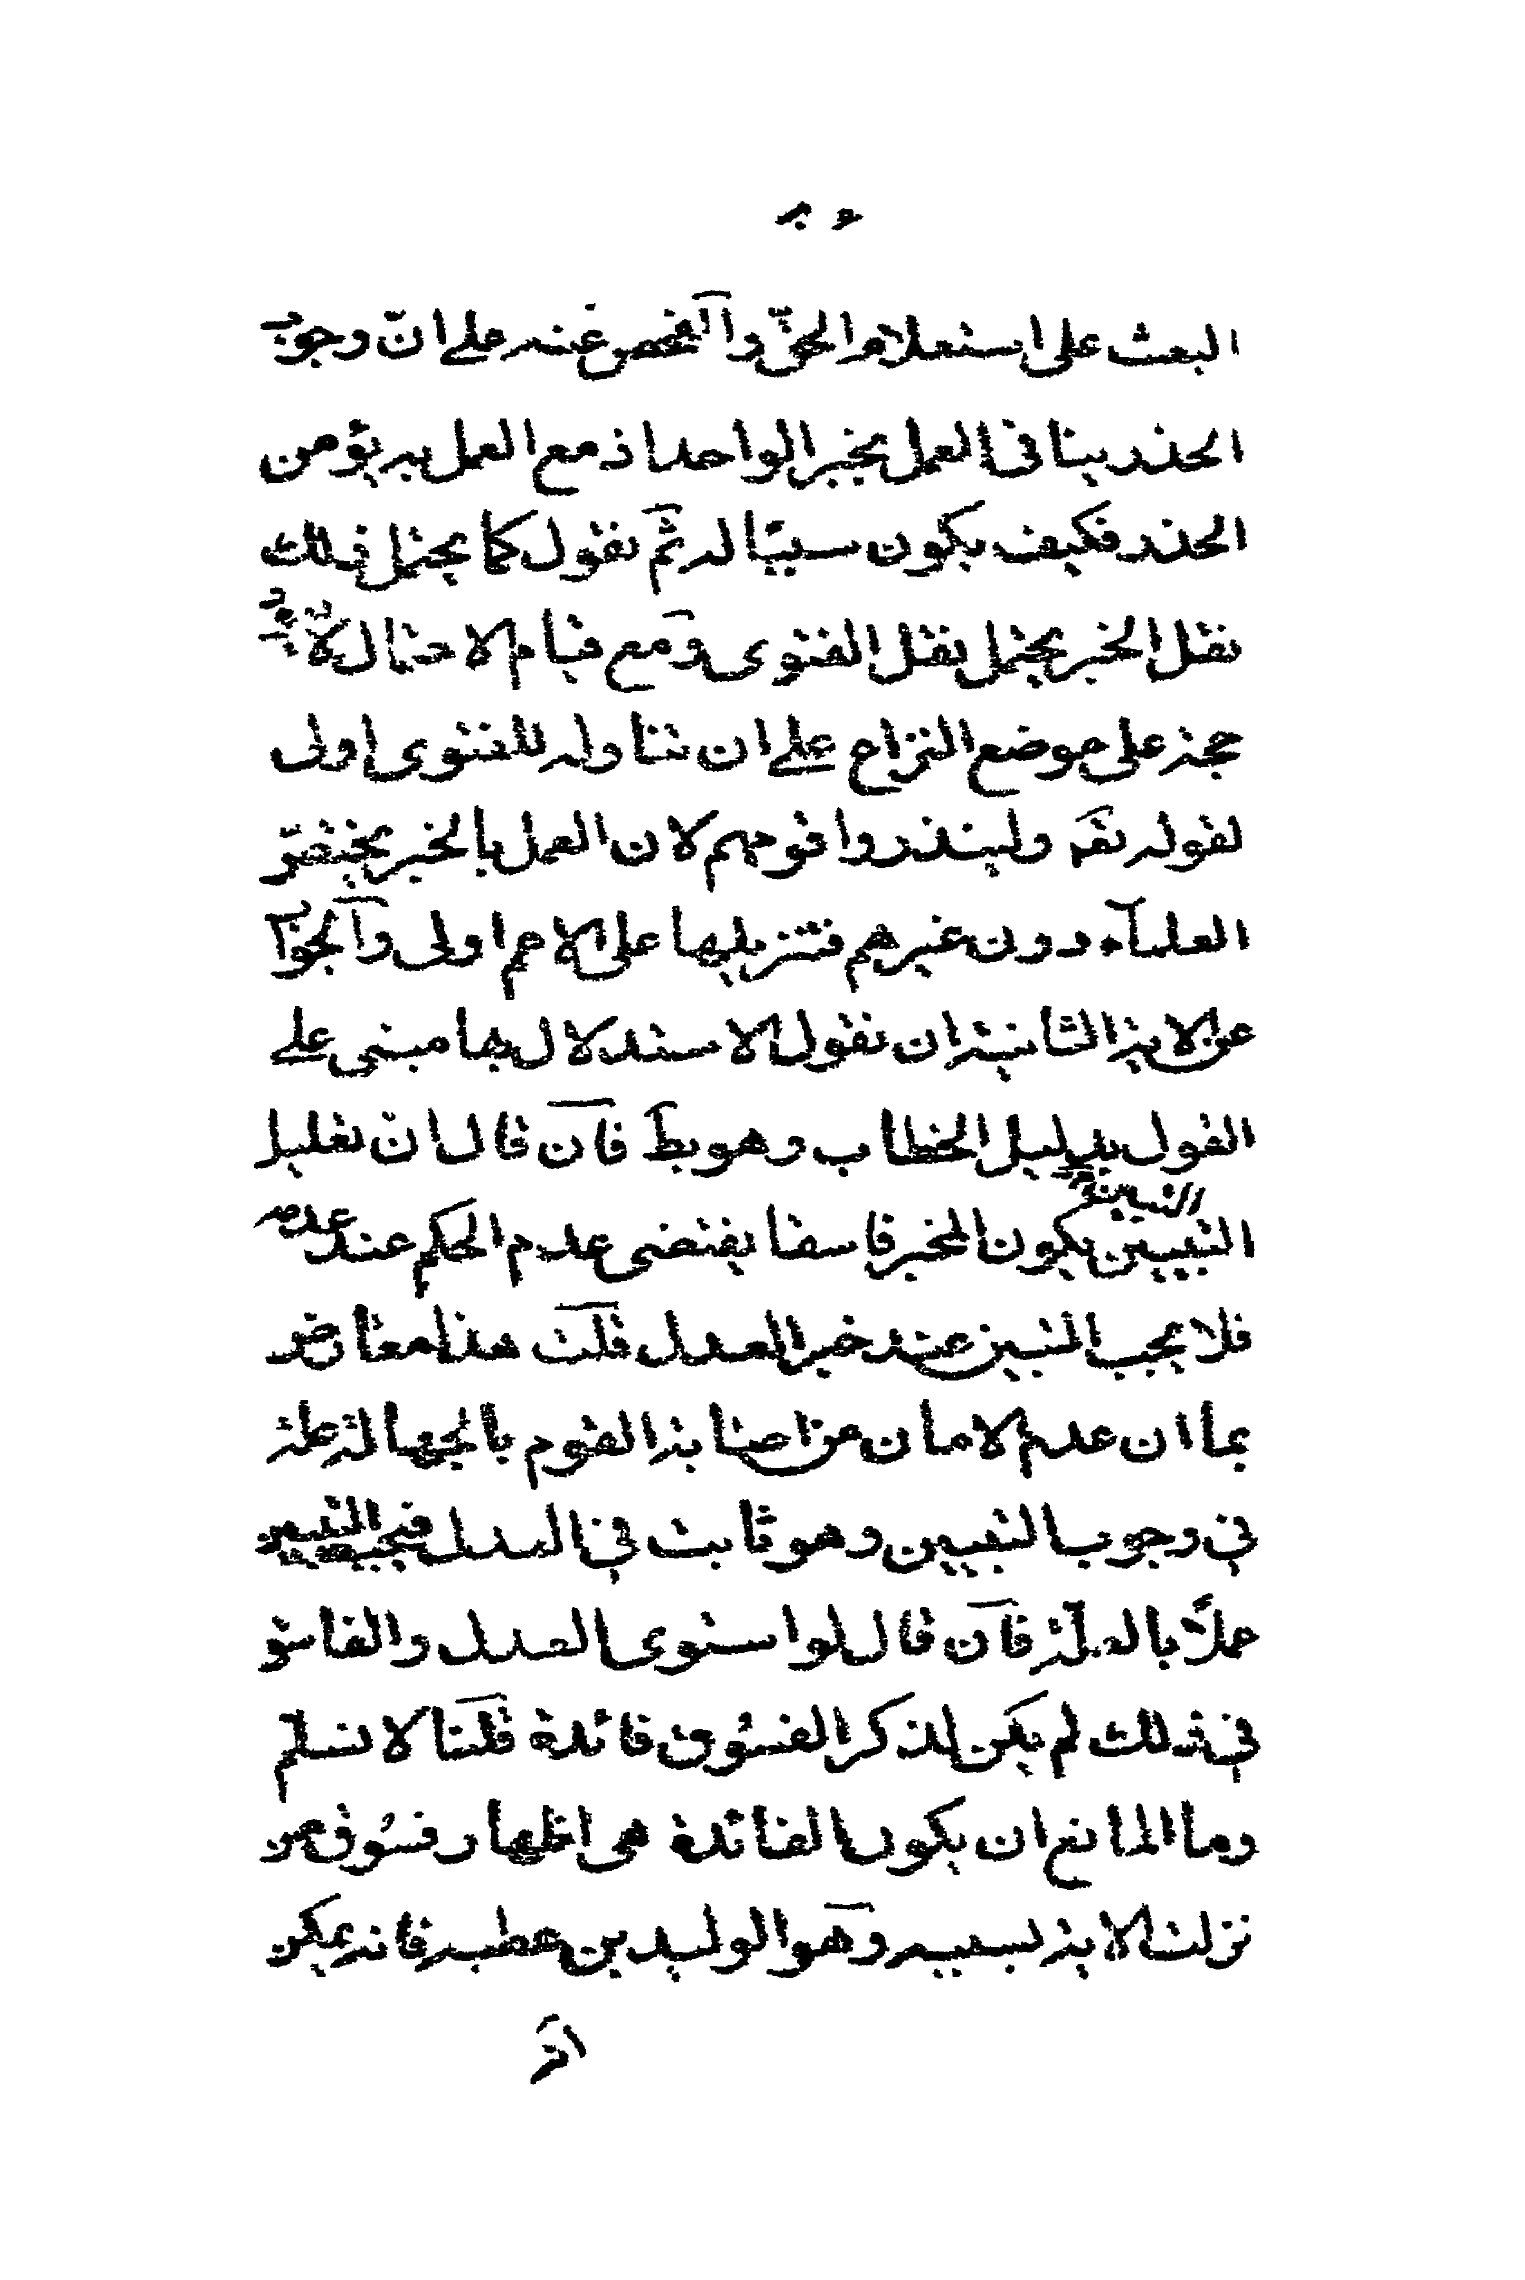 البعث على استعلام الحقّ والفحص عنه على انّ وجوب
الحذر ينافى العمل بخبر الواحد اذ مع العمل به يؤمن
الحذر فكيف يكون سببًا له ثمّ نقول كما يحتمل ذلك
نقل الخبر يحتمل نقل الفتوى ومع قيام الاحتمال لا
حجة على موضع النزاع على ان تناوله للفتوى اولى
لقوله تعـ ولينذروا قومهم لان العمل بالخبر يختصّ
العلماء دون غيرهم فتنزيلها على الاعم اولى والجواب
عن الاية الثانية ان نقول الاستدلال بها مبنى على
القول بدليل الخطاب وهو بط فان قال ان تعليل
التبيين
التبيين بكون المخبر فاسقا يقتضى عدم الحكم عند عدمه
فلا يجب التبين عند خبر العدل قلت هذا معارض
بما ان عدم الامان من اصابة القوم بالجهالة علة
في وجوب التبيين وهو ثابت في العدل فيجب التبيين
عملاً بالعلّة فان قال لو استوى العدل والفاسق
في ذلك لم يكن لذكر الفسوق فائدة قلنا لا نسلم
وما المانع ان يكون الفائدة هى اظهار فسوق من
نزلت الاية بسببه وهو الوليد بن عطبه فانه يمكن